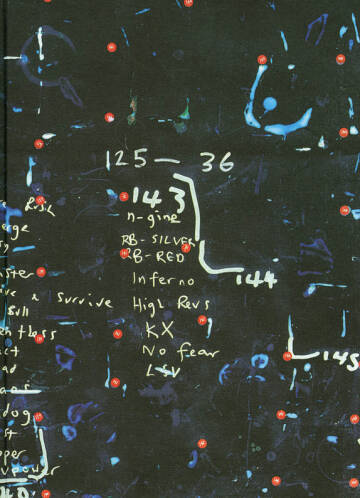 125 — 36
143
n-gine
RB-SILVER
RB-RED
Inferno
High Revs
KX
No fear
LSV
144
145
Rush
erge
ster
ive & Survive
Bull
entless
act
ad
dog
st
pper
vpower